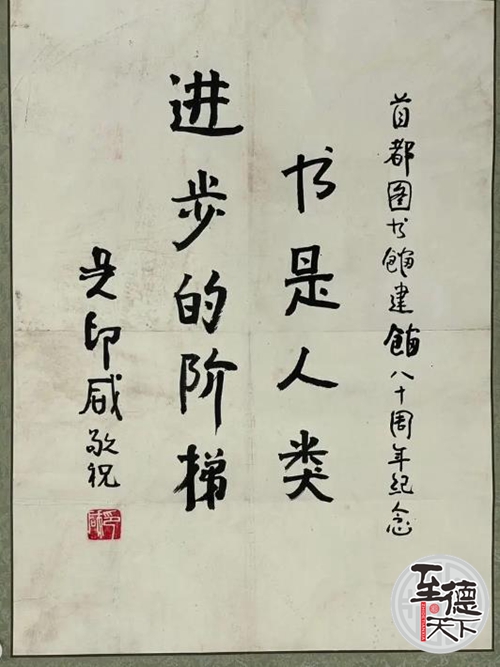 首都图书馆建馆八十周年纪念
书是人类
进步的阶梯
吴印咸敬祝
印咸
至德天下